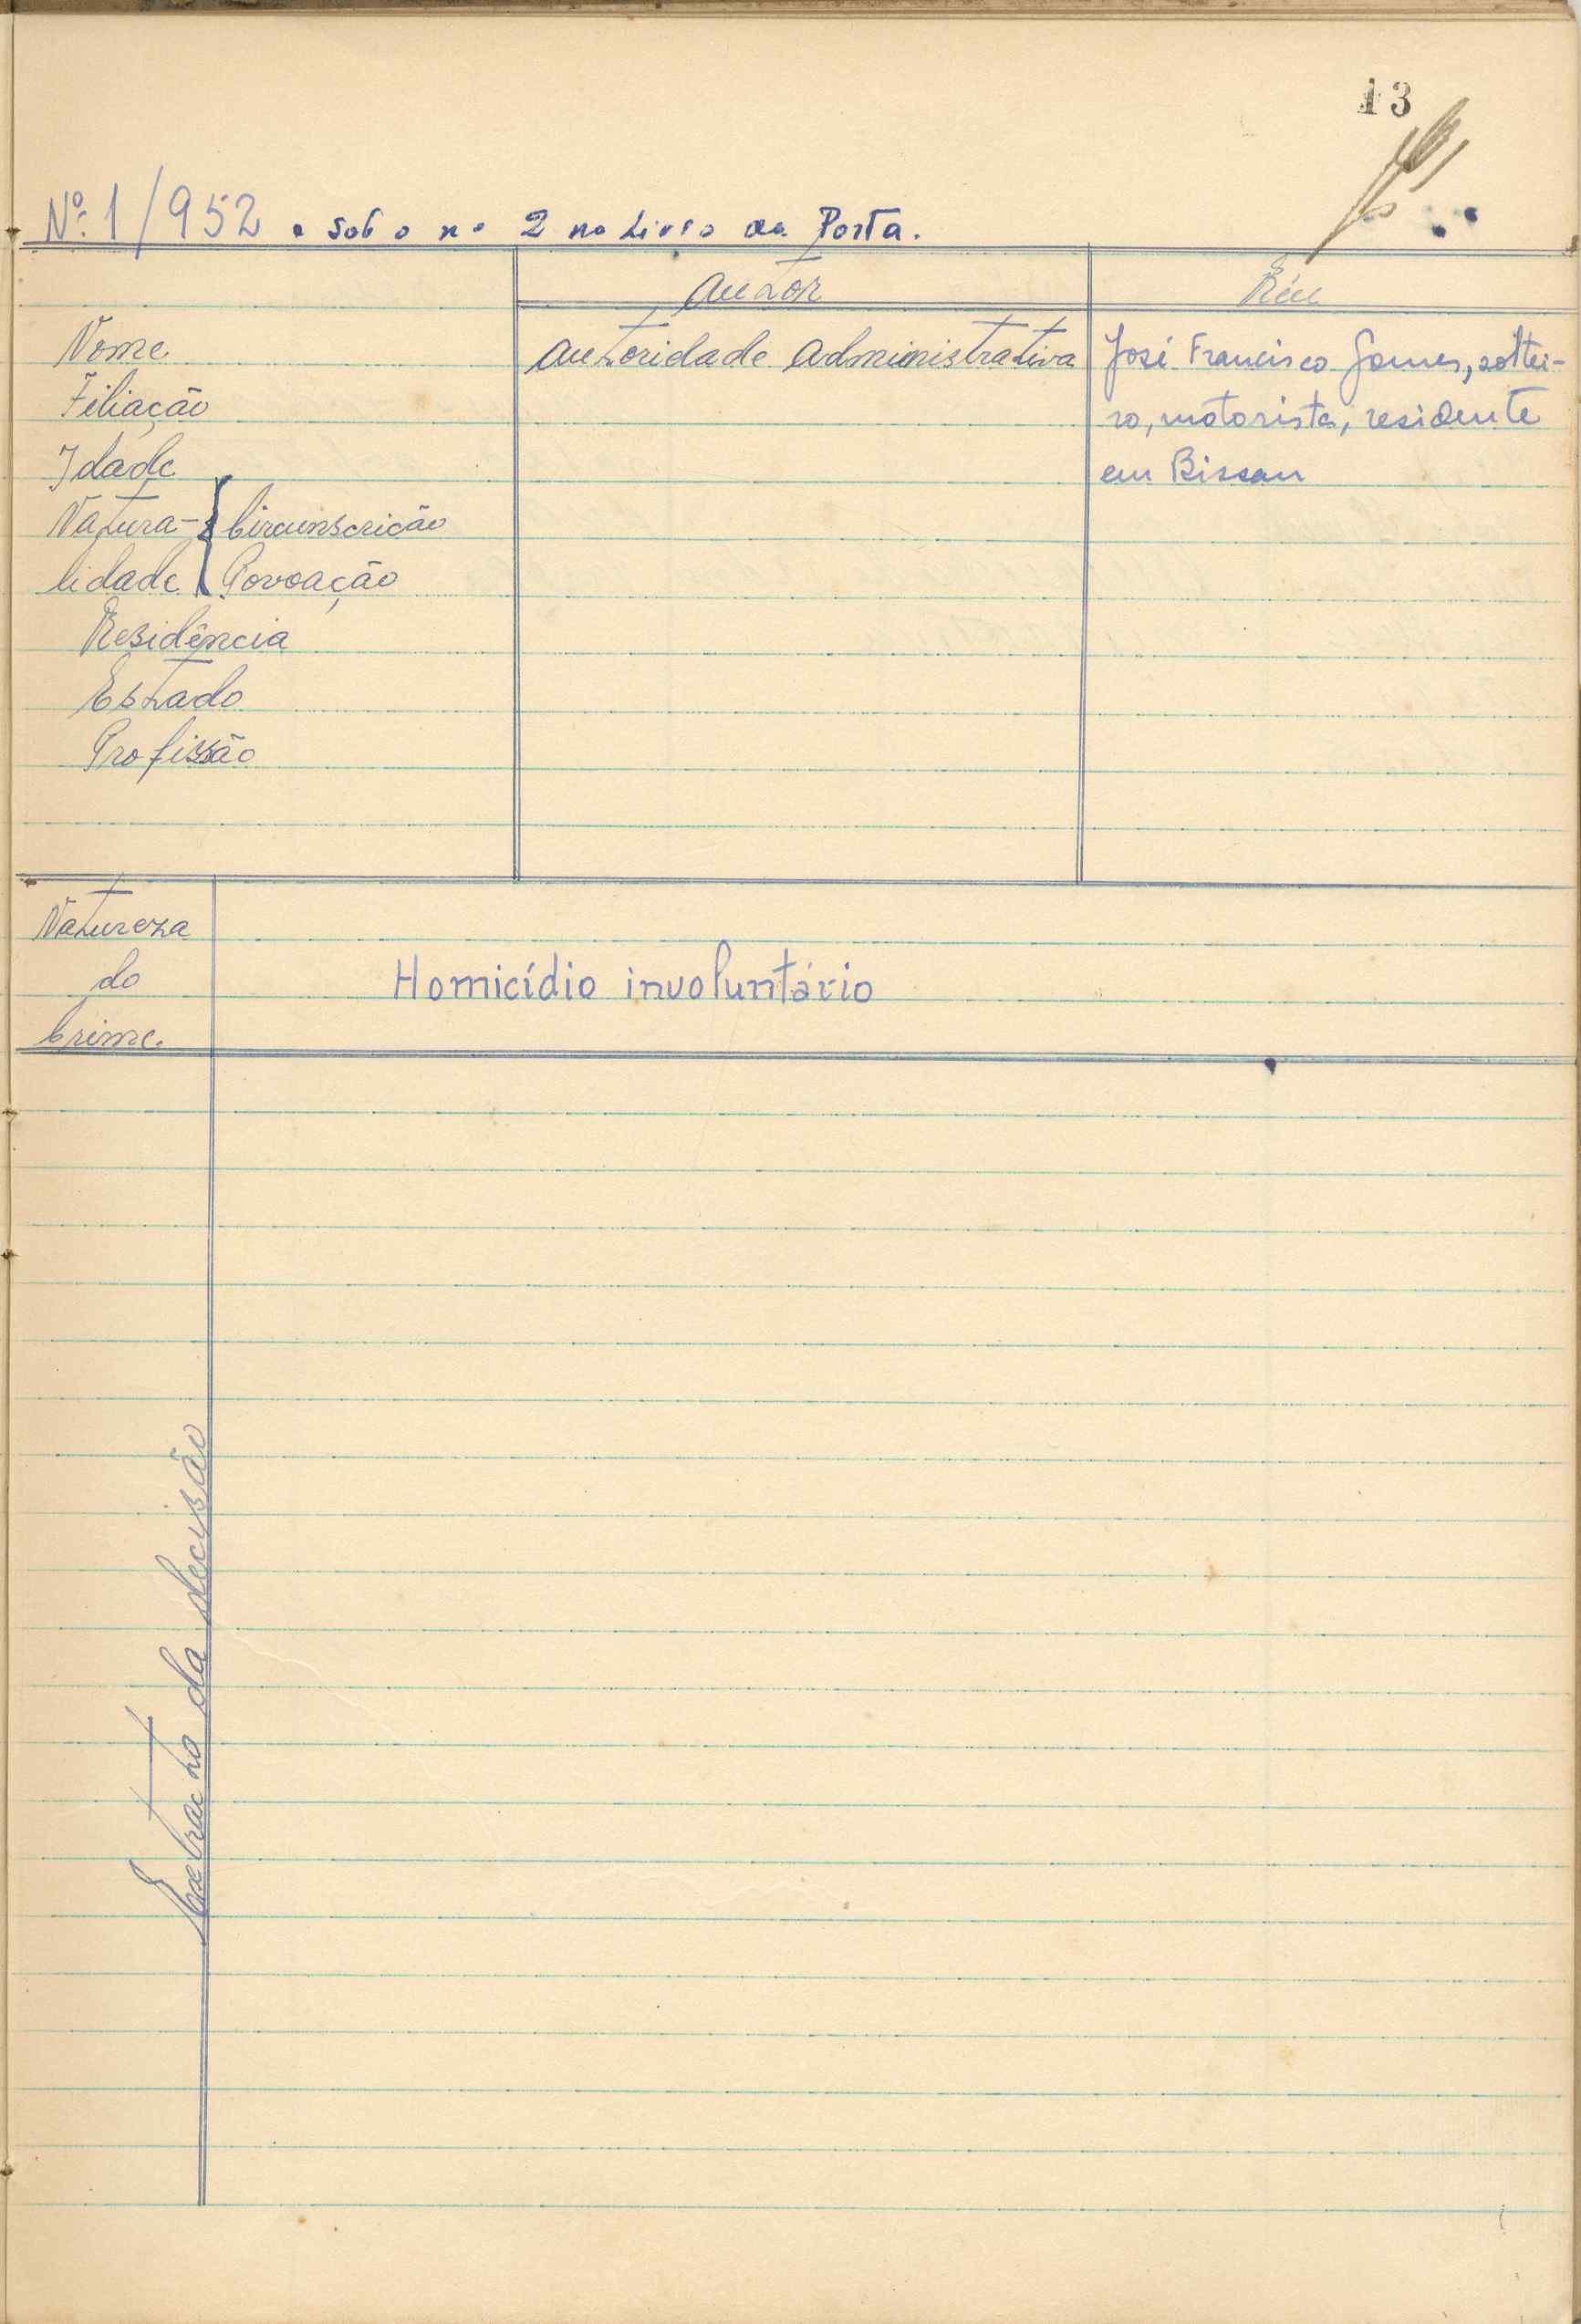 13
Nº 1/952 e sob o nº 2 no Livro da Porta.
Autor
Réu
Nome
Autoridade Administrativa
José Francisco Gomes, soltei-
Filiação
ro, motorista, residente
Idade
em Bissau
Natura- { Circunscrição
lidade { Povoação
Residência
Estado
Profissão
Natureza
do
Crime.
Homicídio involuntário
Extracto da decisão